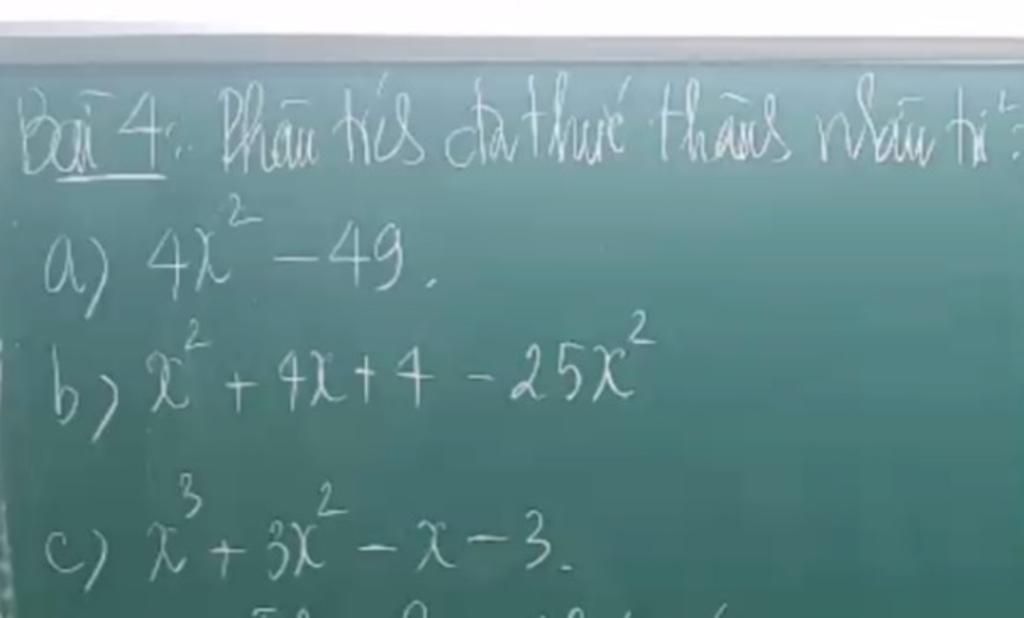 Bài 4: Phân tích đa thức thành nhân tử:
a) 4x² - 49.
b) x² + 4x + 4 - 25x²
c) x³ + 3x² - x - 3.